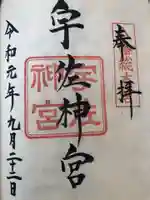 奉拝
八幡総本宮
宇佐神宮
宇佐神宮
令和元年九月二十二日